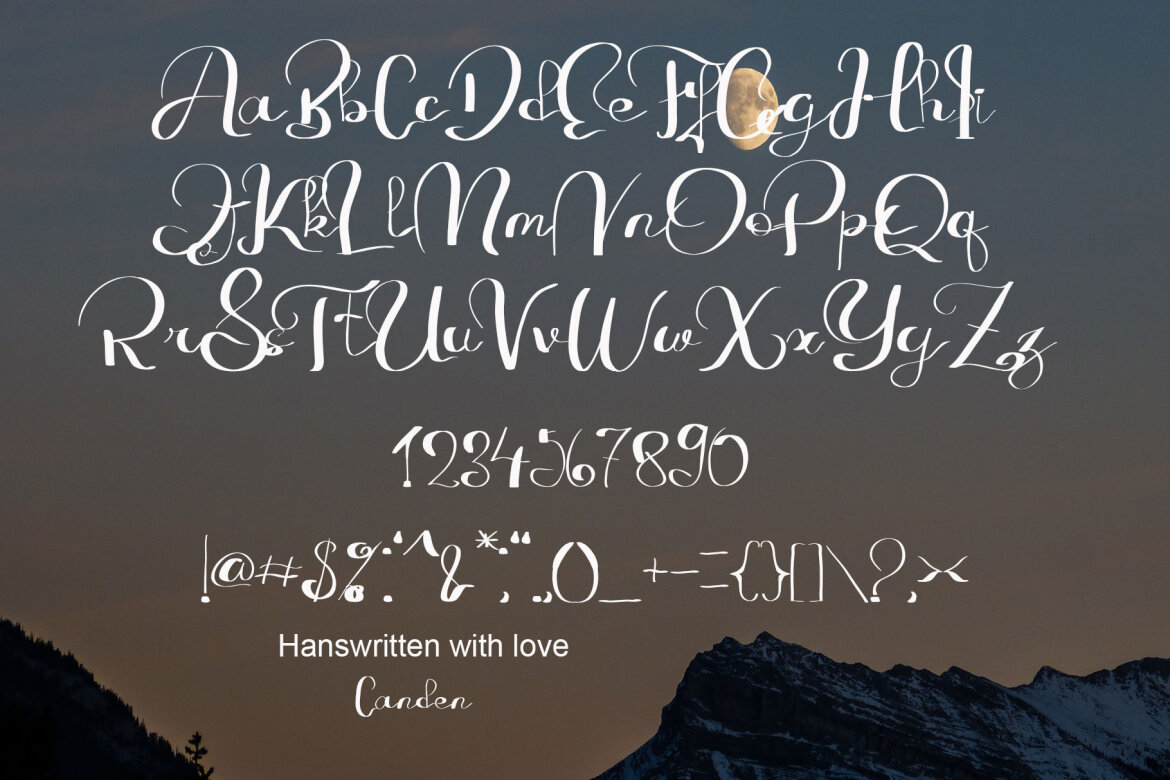 AaBbCcDdEeFfGgHhIi
JjKkLlMmNnOoPpQq
RrSsTtUuVvWwXxYyZz
1234567890
!@#$%:‘^&*;“.,()_+-={}[]\?,><
Hanswritten with love
Canden